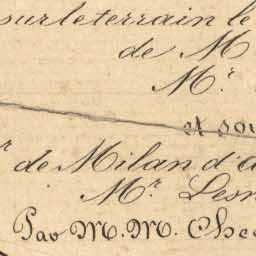 sur le terrain le
de M
M.r
et sou
r de Milan d'A
M.r Lesn
Par M.M. Che